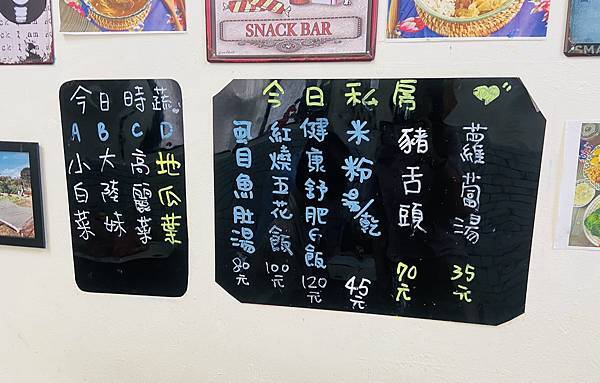 SNACK BAR
今日時蔬
A 小白菜
B 大陸妹
C 高麗菜
D 地瓜葉
今日私房
蘿蔔湯 35元
豬舌頭 70元
米粉湯/乾 45元
健康舒肥G飯 120元
紅燒五花飯 100元
虱目魚肚湯 80元